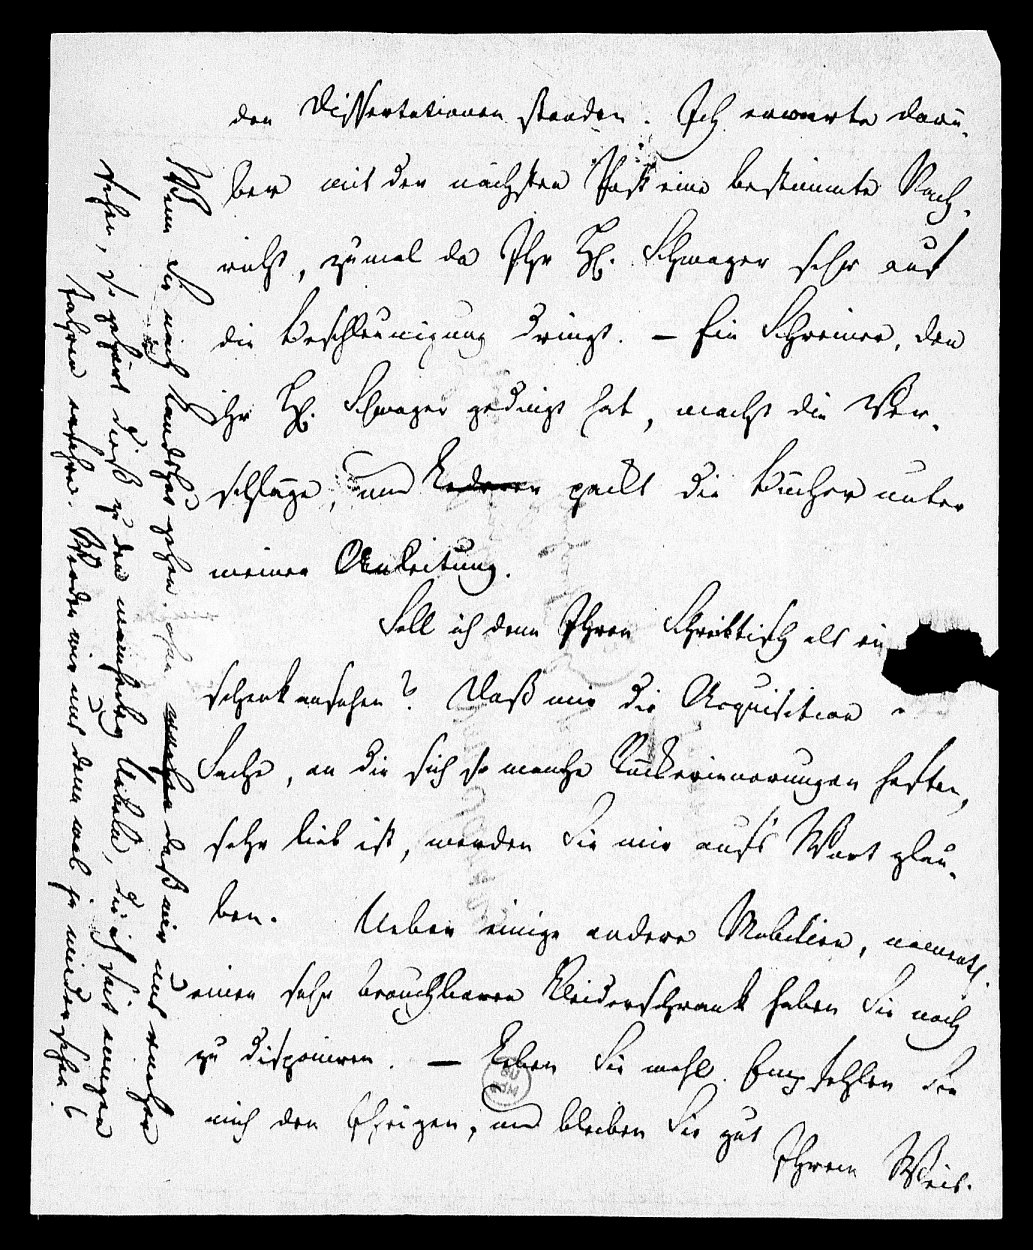 den Dissertationen standen. Ich erwarte darü-
ber mit der nächsten Post eine bestimmte Nach-
richt, zumal da Ihr H. Schwager sehr auf
die Beschleunigung dringt. – Ein Schreiner, den
ihr H. Schwager gedingt hat, macht die Ver-
schläge, und packt die Bücher unter
meiner Anleitung.
Soll ich denn Ihren Schreibtisch als ein
schenk ansehen? Daß mir die Acquisition
Sache, an die sich so manche Rückerinnerungen heften,
sehr lieb ist, werden Sie mir aufs Wort glau-
ben. Ueber einige andere Mobilien, namentl.
einen sehr brauchbaren Kleiderschrank haben Sie noch
zu disponiren. – Leben Sie wohl. Empfehlen Sie
mich den Ihrigen, und bleiben Sie gut
Ihrem Weis.
Wenn Sie nach Landshut gehen, ohne daß wir uns vorher
sehen, so gehört dieß zu den mancherley Uebeln, die ich seit einigen
Jahren erfahre. Werden wir uns denn wol je wieder sehen?